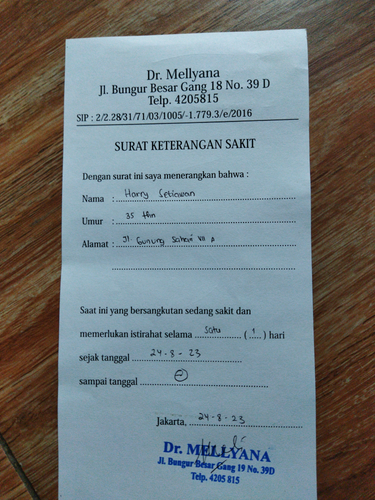 Dr. Mellyana
Jl. Bungur Besar Gang 18 No. 39 D
Telp. 4205815
SIP : 2/2.28/31/71/03/1005/-1.779.3/e/2016
SURAT KETERANGAN SAKIT
Dengan surat ini saya menerangkan bahwa :
Nama : Harry Setiawan
Umur : 35 thn
Alamat : Jl. Gunung Sahari VII
Saat ini yang bersangkutan sedang sakit dan
memerlukan istirahat selama satu ( 1 ) hari
sejak tanggal 24 - 8 - 23
sampai tanggal
Jakarta, 24 - 8 - 23
Dr. MELLYANA
Jl. Bungur Besar Gang 19 No. 39D
Telp. 4205 815